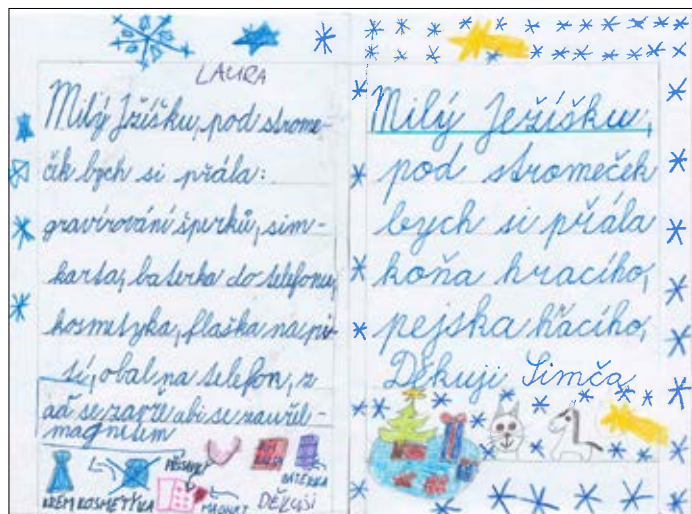 LAURA
Milý Ježíšku, pod strome-
ček bych si přála:
gravírování šperků, sim-
karta, baterka do telefonu,
kosmetyka, flaška na pi-
tí, obal na telefon, z
ad se zavře abi se zauřel-
magnetem
KRÉM KOSMETYKA
MAGNET
BATERKA
DĚKUJI
Milý Ježíšku,
pod stromeček
bych si přála
koňa hracího,
pejska hřacího,
Děkuji Simča